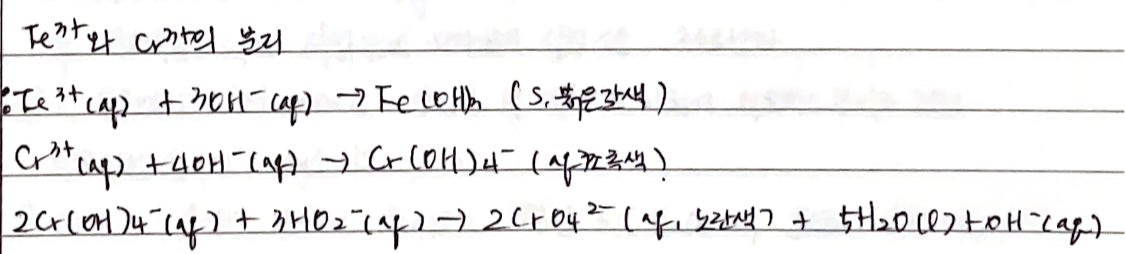 Fe³⁺와 Cr³⁺의 분리
Fe³⁺(aq) + 3OH⁻(aq) → Fe(OH)₃ (s, 붉은갈색)
Cr³⁺(aq) + 4OH⁻(aq) → Cr(OH)4⁻ (aq, 초록색)
2Cr(OH)4⁻(aq) + 3HO2⁻(aq) → 2CrO4²⁻ (aq, 노란색) + 5H2O(l) + OH⁻(aq)